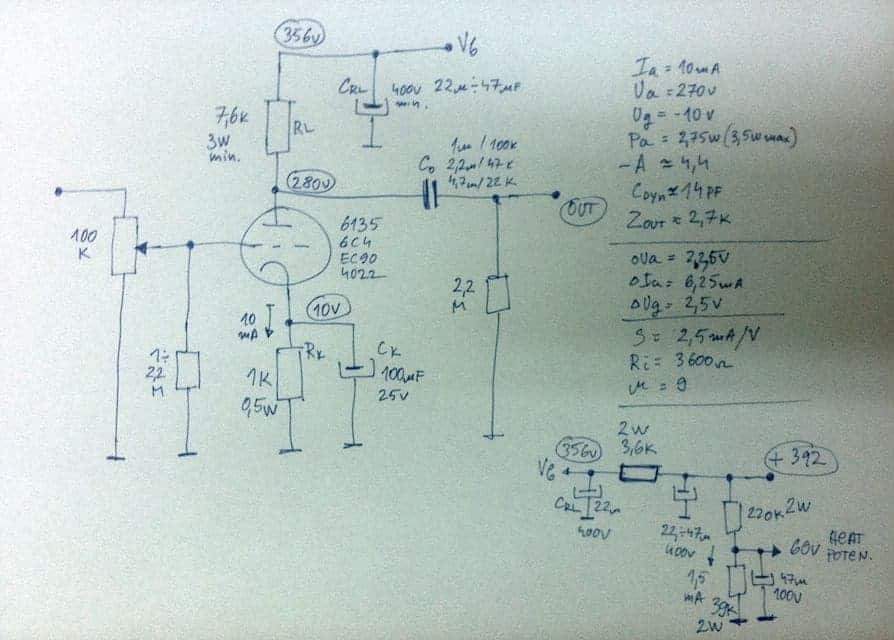 356V
V6
7,6K
3W
min.
RL
CRL
400V 22µ÷47µF
min.
280V
1µ / 100K
C0 2,2µ/47K
4,7µ/22K
OUT
100
K
6135
6C4
EC90
4022
10V
10
mA
1÷
2,2
M
1K
0,5W
RK
CK
100µF
25V
2,2
M
Ia = 10mA
Ua = 270V
Ug = -10V
Pa = 2,75W (3,5W max)
-A ≈ 4,4
CDYN ≈ 14PF
ZOUT ≈ 2,7K
ΔIa = 6,25mA
ΔUg = 2,5V
S = 2,5mA/V
Ri = 3600Ω
µ = 9
2W
3,6K
356V
V6
+ 392
CRL 22µ
400V
22÷47µ
400V
220K 2W
60V HEAT
POTEN.
1,5
mA
39K
2W
47µ
100V